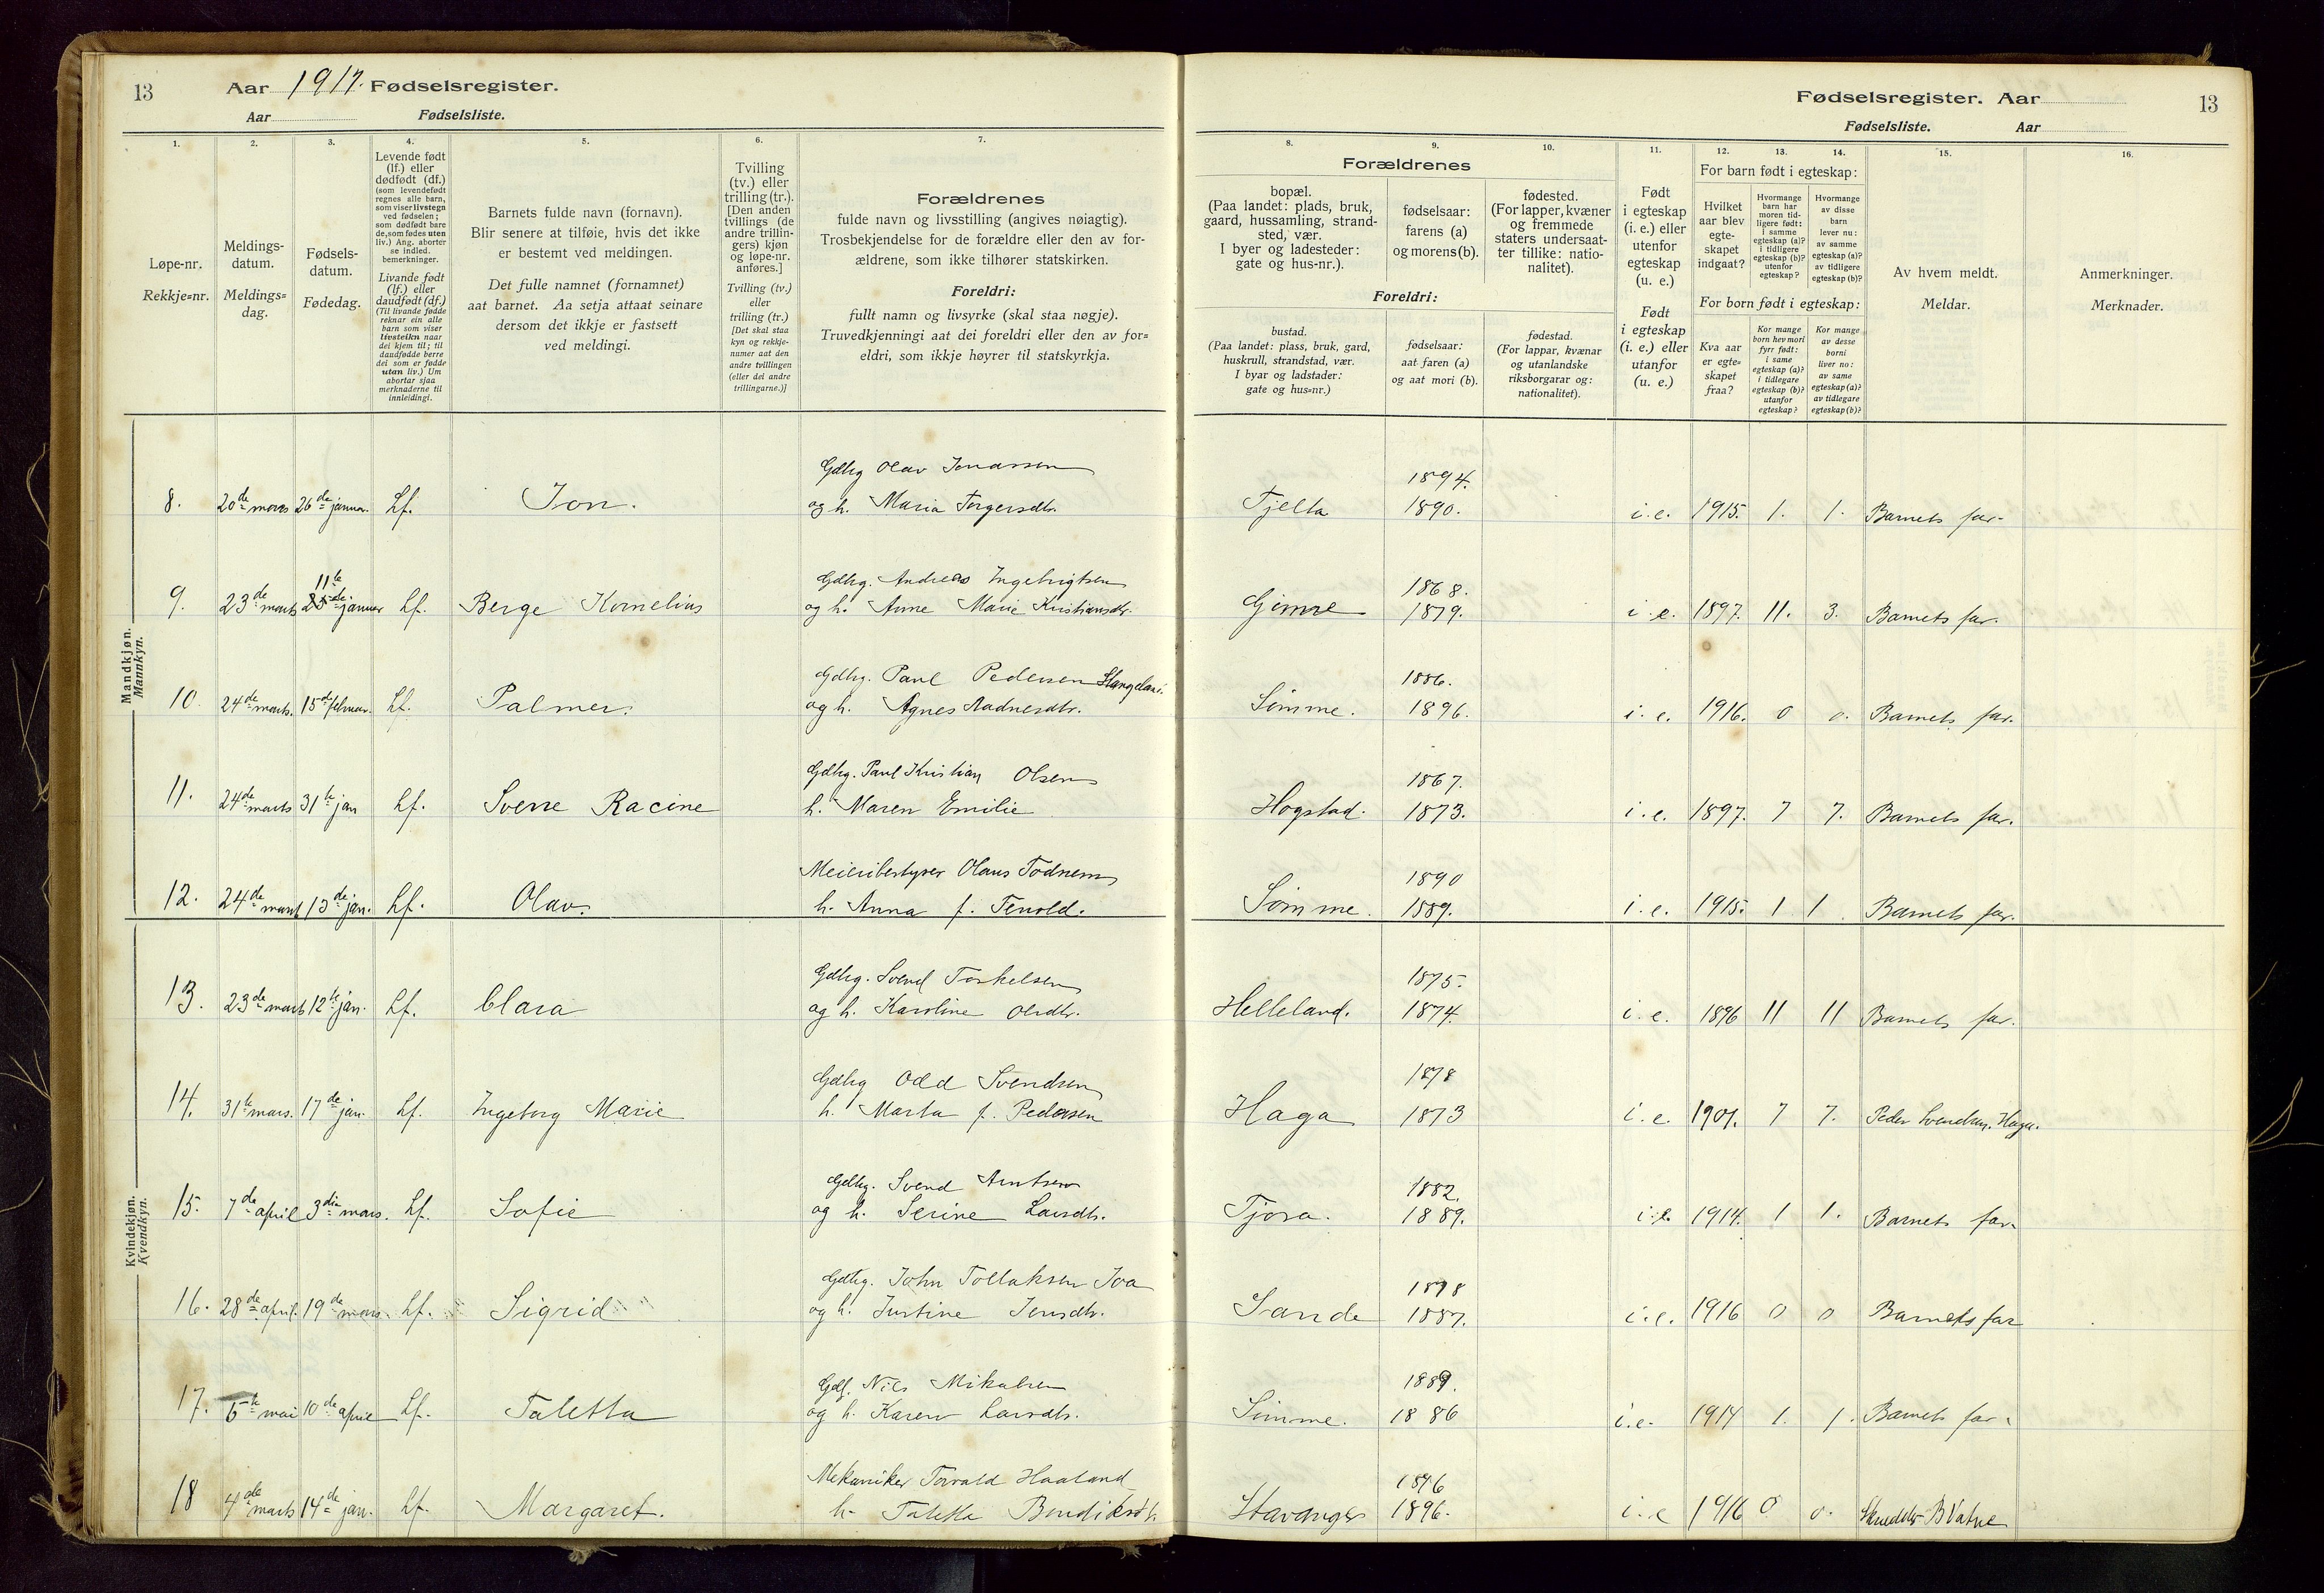 13
Aar 1917. Fødselsregister.
Aar Fødselsliste.
Fødselsregister. Aar
13
Fødselsliste. Aar
1.
Løpe-nr.
Rekkje=nr.
2.
Meldings-
datum.
Meldings=
dag.
3.
Fødsels-
datum.
Fødedag.
4.
Levende født
(lf.) eller
dødfødt (df.)
(som levendefødt
regnes alle barn,
som viser livstegn
ved fødselen;
som dødfødt bare
de, som fødes uten
liv.) Ang. aborter
se indled.
bemerkninger.
Livande født
(lf.) eller
daudfødt (df.)
(Til livande fødde
reknar ein alle
barn som viser
livsteikn naar
dei kjem til; til
daudfødde berre
dei som er fødde
utan liv.) Um
abortar sjaa
merknaderne til
innleidingi.
5.
Barnets fulde navn (fornavn).
Blir senere at tilføie, hvis det ikke
er bestemt ved meldingen.
Det fulle namnet (fornamnet)
aat barnet. Aa setja attaat seinare
dersom det ikkje er fastsett
ved meldingi.
6.
Tvilling
(tv.) eller
trilling (tr.).
[Den anden
tvillings (de
andre trillin-
gers) kjøn
og løpe-nr.
anføres.]
Tvilling (tv.)
eller
trilling (tr.)
[Det skal staa
kyn og rekkje-
numer aat den
andre tvillingen
(eller dei andre
trillingarne.)]
7.
Forældrenes
fulde navn og livsstilling (angives nøiagtig).
Trosbekjendelse for de forældre eller den av for-
ældrene, som ikke tilhører statskirken.
Foreldri:
fullt namn og livsyrke (skal staa nøgje).
Truvedkjenningi aat dei foreldri eller den av for=
eldri, som ikkje høyrer til statskyrkja.
8.
9.
10.
Forældrenes
bopæl.
(Paa landet: plads, bruk,
gaard, hussamling, strand-
sted, vær.
I byer og ladesteder:
gate og hus-nr.).
fødselsaar:
farens (a)
og morens (b).
fødested.
(For lapper, kvæner
og fremmede
staters undersaat-
ter tillike: natio-
nalitet).
Foreldri:
bustad.
(Paa landet: plass, bruk, gard,
huskrull, strandstad, vær.
I byar og ladstader:
gate og hus=nr.)
fødselsaar:
aat faren (a)
og aat mori (b).
fødestad.
(For lappar, kvænar
og utanlandske
riksborgarar og:
nationalitet).
11.
Født
i egteskap
(i. e.) eller
utenfor
egteskap
(u. e.)
Født
i egteskap
(i. e.) eller
utanfor
(u. e.)
12.
13.
14.
For barn født i egteskap:
Hvilket
aar blev
egte-
skapet
indgaat?
Hvormange
barn har
moren tid-
ligere født:
i samme
egteskap (a)?
i tidligere
egteskap (b)?
utenfor
egteskap?
Hvormange
av disse
barn
lever nu:
av samme
egteskap (a)?
av tidligere
egteskap (b)?
For born født i egteskap:
Kva aar
er egte=
skapet
fraa?
Kor mange
born hev mori
fyrr født:
i same
egteskap (a)?
i tidlegare
egteskap (b)?
utanfor
egteskap?
Kor mange
av desse
borni
liver no:
av same
egteskap (a)?
av tidlegare
egteskap (b)?
15.
Av hvem meldt.
Meldar.
16.
Anmerkninger.
Merknader.
Mandkjøn.
Mannkyn.
Gdbrg Olav Jonassen 1894.
8. 20de mars 26de januar. Lf. Jon. og h. Maria Torgersdtr. Tjelta 1890. i. e. 1915. 1. 1. Barnets far.
11te Gdbrg. Andreas Ingebrigtsen 1868.
9. 23de marts januar Lf. Berge Kornelius og h. Anne Marie Kristiansdtr. Gimre 1879. i. e. 1897. 11. 3. Barnets far.
Gdbrg. Paul Pedersen Stangeland. 1886.
10. 24de marts. 15de februar. Lf. Palmer. og h. Agnes Aadnesdtr. Sømme. 1896. i. e. 1916. 0 0. Barnets far.
Gdbrg. Paul Kristian Olsen 1867.
11. 24de marts 31te jan Lf. Sverre Racine h. Maren Emilie Hogstad. 1873. i. e. 1897. 7 7. Barnets far.
Meieribestyrer Olaus Todnem 1890
12. 24de marts 13de jan. Lf. Olav. h. Anna f. Tenold. Sømme. 1889. i. e. 1915. 1 1. Barnets far.
Kvindekjøn.
Kvendkyn.
Gdbrg. Svend Torkelsen 1875.
13. 23de marts 12te jan. Lf. Clara og h. Karoline Olsdtr. Helleland. 1874. i. e. 1896 11 11 Barnets far.
Gdbrg Odd Svendsen 1878
14. 31te mars. 17de jan. Lf. Ingeborg Marie h. Marta f. Pedersen Haga 1873 i. e. 1901. 7 7. Peder Svendsen. Haga.
Gdbrg. Svend Arntsen 1882.
15. 7de april 3die mars. Lf. Sofie og h. Serine Larsdtr. Tjora. 1889. i. e. 1914. 1 1. Barnets far.
Gdbrg. John Tollaksen Joa 1878
16. 28de april. 19de mars. Lf. Sigrid og h. Justine Jensdtr. Sande 1887. i. e. 1916 0 0 Barnets far
Gdbrg. Nils Mikalsen 1889.
17. 5te mai 10de april Lf. Taletta og h. Karen Larsdtr. Sømme. 1886 i. e. 1914 1. 1. Barnets far.
Mekaniker Torvald Haaland 1896
18 4de marts 14de jan. Lf. Margaret. h. Taletta Bendiksdtr. Stavanger 1896. i. e 1916 0 0. B Vatne